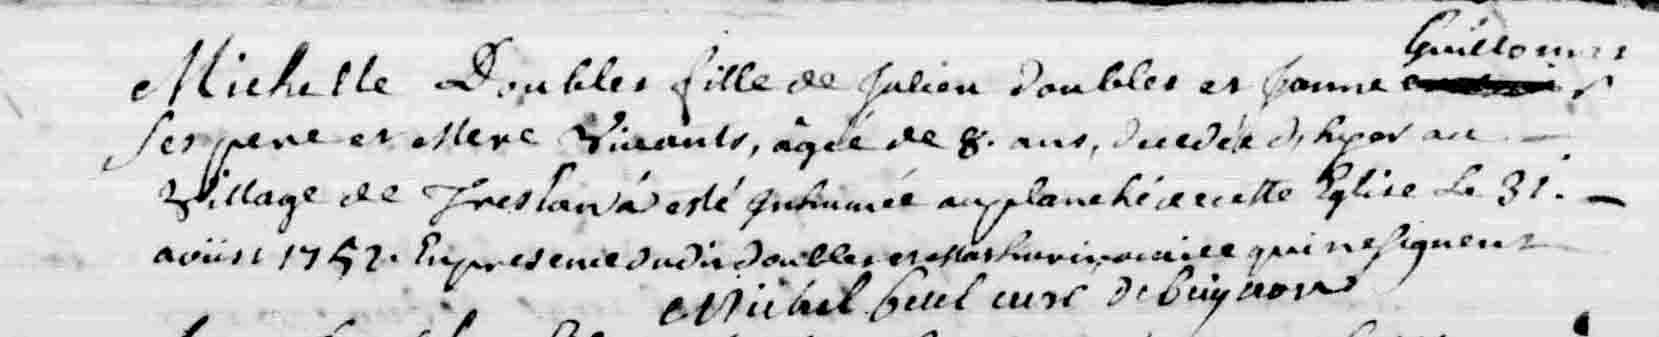 Guillomes
Michelle Doubles fille de Julien Doubles et Janne
ses pere et Mere Vivants, âgée de 8. ans, decedée d'hyer au
Village de a esté Inhumée au planché de cette Eglise Le 31.
aoüst 1752. En presence dudit Doubles et qui ne signent
Michel curé de